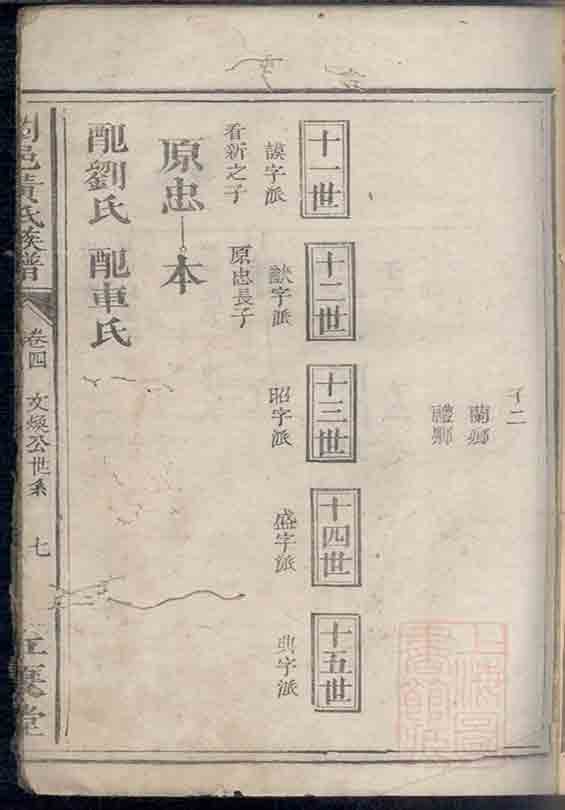 子二
蘭鄉
禮鄉
十一世
十二世
十三世
十四世
十五世
謨字派
猷字派
昭字派
盛字派
典字派
看新之子
原忠長子
原忠
本
配劉氏
配車氏
邑黃氏族譜
卷四
文煥公世系
七
堂
上海圖書館藏